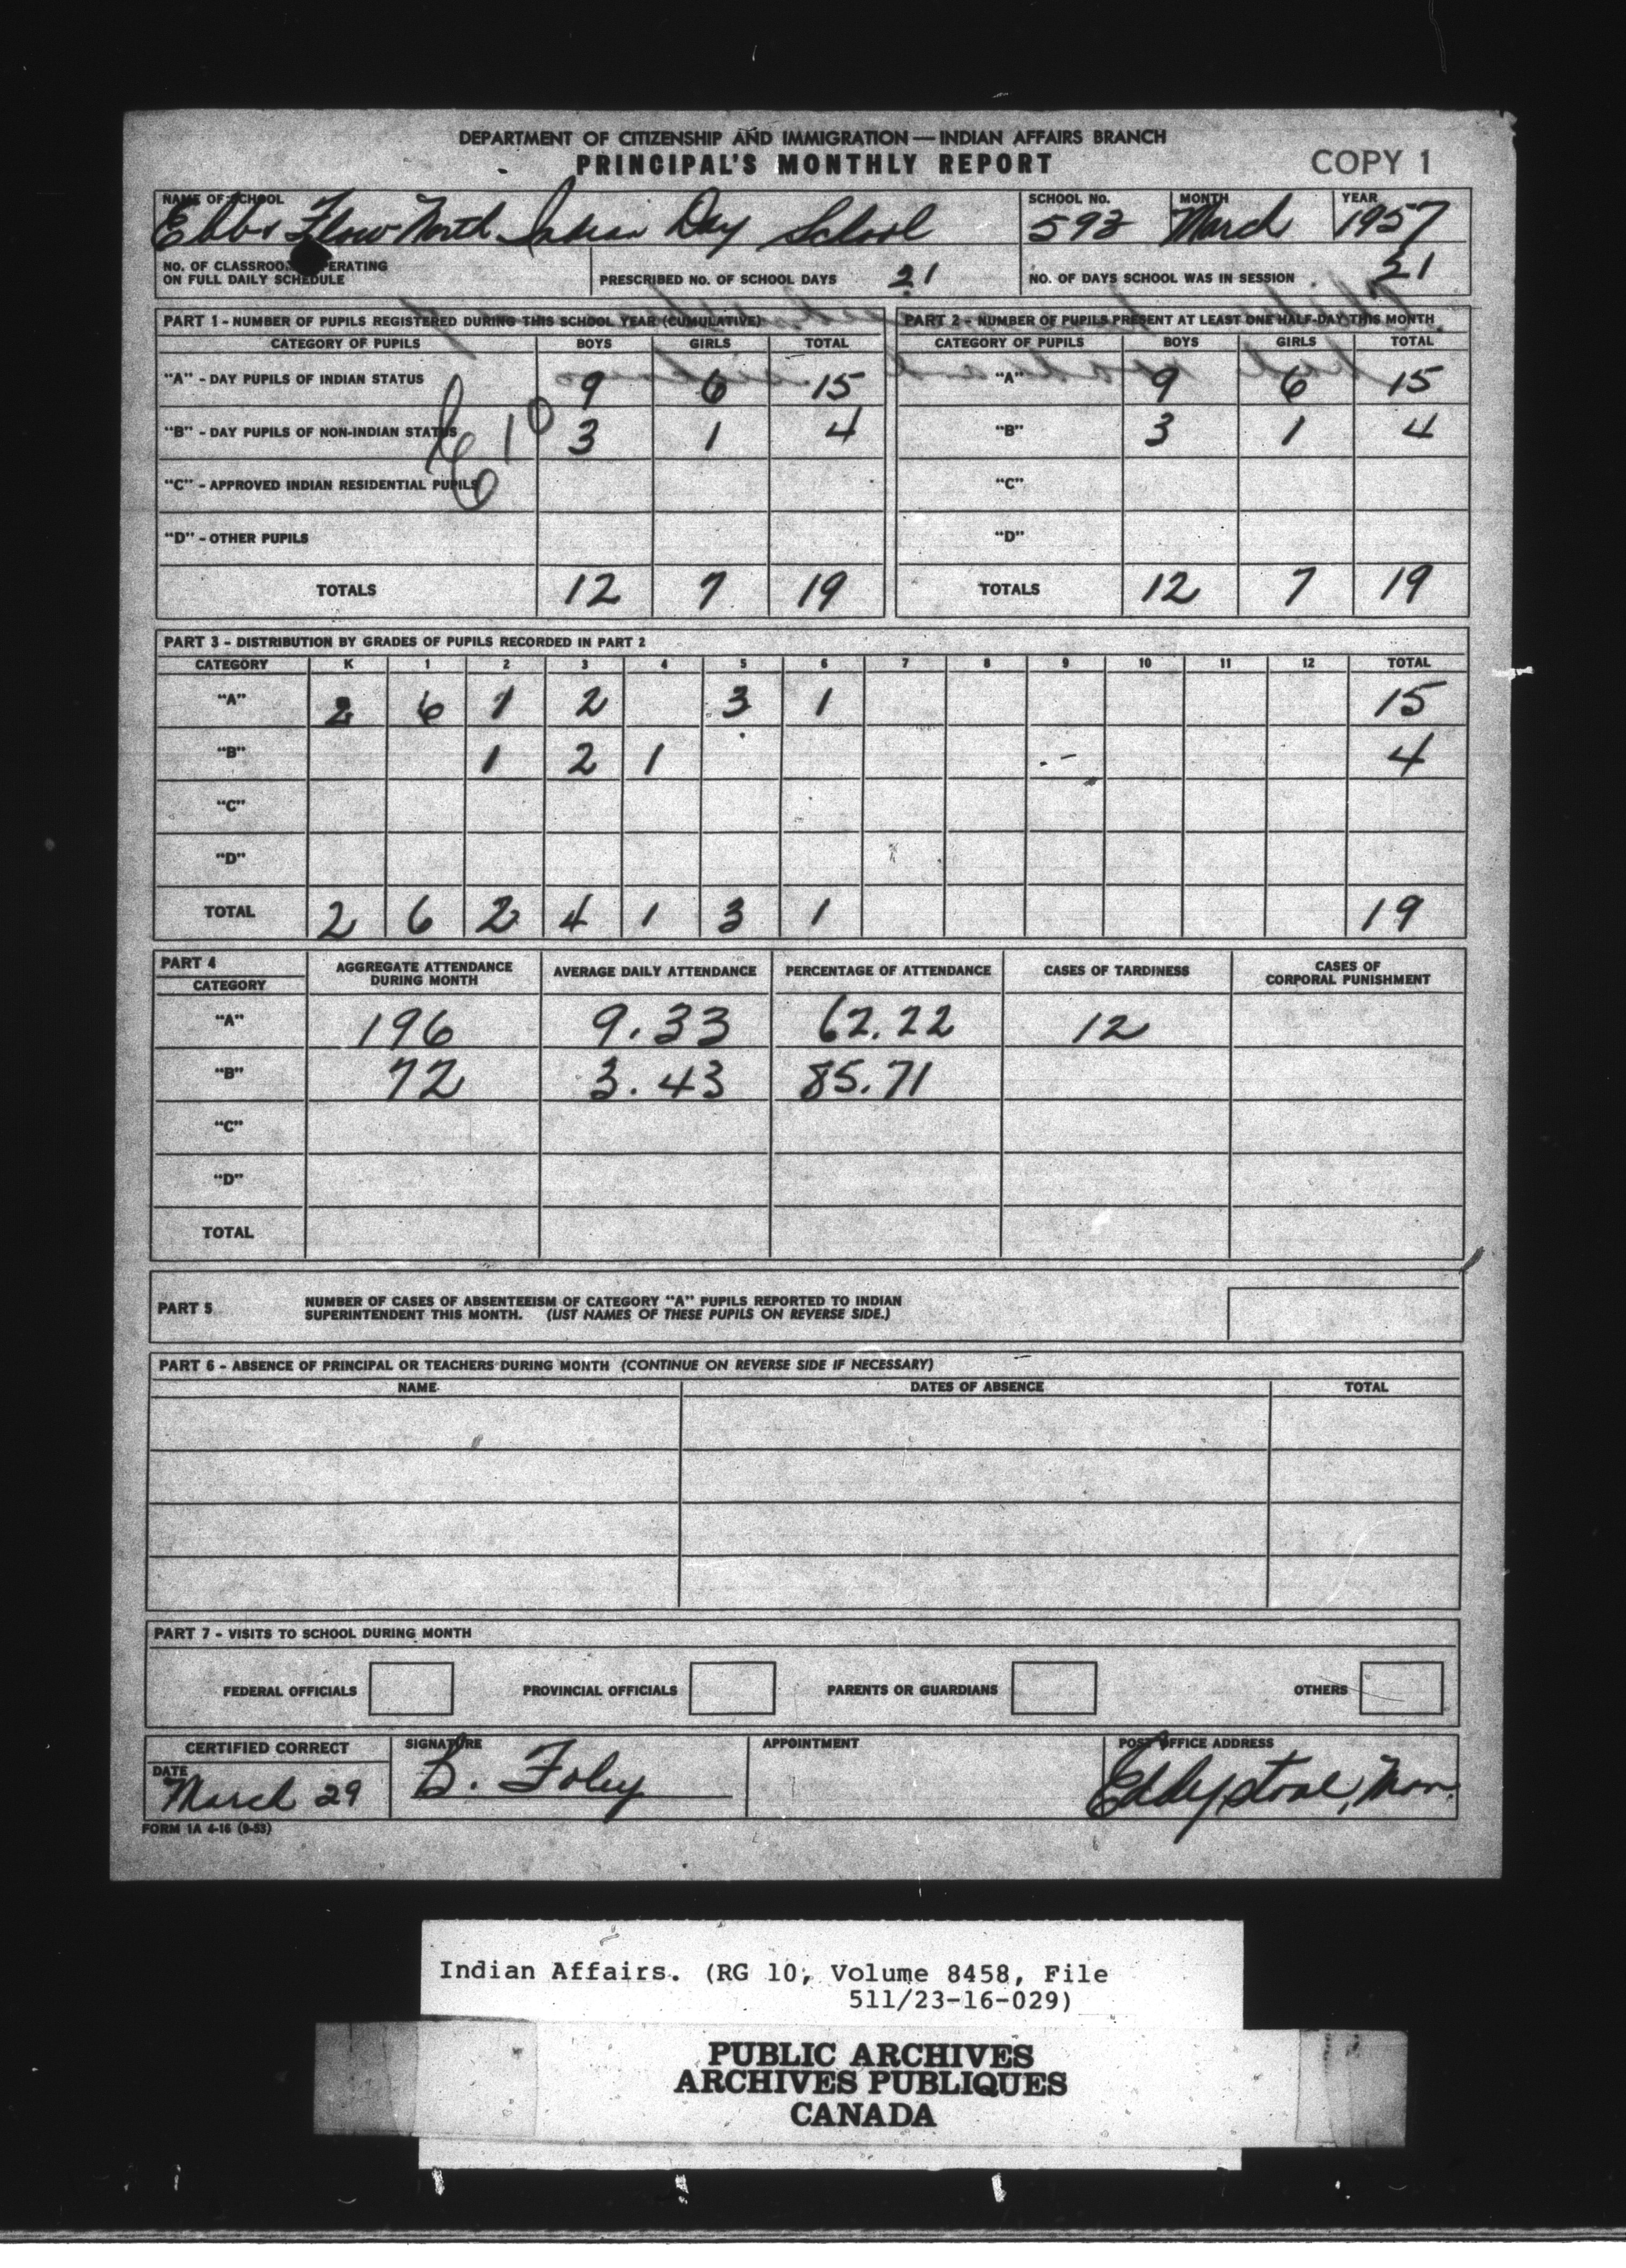 DEPARTMENT OF CITIZENSHIP AND IMMIGRATION — INDIAN AFFAIRS BRANCH
PRINCIPAL'S MONTHLY REPORT COPY 1
NAME OF SCHOOL SCHOOL NO. MONTH YEAR
Ebb & Flow North Indian Day School 593 March 1957
NO. OF CLASSROOMS OPERATING
ON FULL DAILY SCHEDULE PRESCRIBED NO. OF SCHOOL DAYS 21 NO. OF DAYS SCHOOL WAS IN SESSION 21
PART 1 - NUMBER OF PUPILS REGISTERED DURING THIS SCHOOL YEAR (CUMULATIVE) PART 2 - NUMBER OF PUPILS PRESENT AT LEAST ONE HALF-DAY THIS MONTH
CATEGORY OF PUPILS BOYS GIRLS TOTAL CATEGORY OF PUPILS BOYS GIRLS TOTAL
"A" - DAY PUPILS OF INDIAN STATUS 9 6 15 "A" 9 6 15
"B" - DAY PUPILS OF NON-INDIAN STATUS 3 1 4 "B" 3 1 4
"C" - APPROVED INDIAN RESIDENTIAL PUPILS "C"
"D" - OTHER PUPILS "D"
TOTALS 12 7 19 TOTALS 12 7 19
PART 3 - DISTRIBUTION BY GRADES OF PUPILS RECORDED IN PART 2
CATEGORY K 1 2 3 4 5 6 7 8 9 10 11 12 TOTAL
"A" 2 6 1 2 3 1 15
"B" 1 2 1 4
"C"
"D"
TOTAL 2 6 2 4 1 3 1 19
PART 4
CATEGORY AGGREGATE ATTENDANCE DURING MONTH AVERAGE DAILY ATTENDANCE PERCENTAGE OF ATTENDANCE CASES OF TARDINESS CASES OF CORPORAL PUNISHMENT
"A" 196 9.33 62.22 12
"B" 72 3.43 85.71
"C"
"D"
TOTAL
PART 5 NUMBER OF CASES OF ABSENTEEISM OF CATEGORY "A" PUPILS REPORTED TO INDIAN
SUPERINTENDENT THIS MONTH. (LIST NAMES OF THESE PUPILS ON REVERSE SIDE.)
PART 6 - ABSENCE OF PRINCIPAL OR TEACHERS DURING MONTH (CONTINUE ON REVERSE SIDE IF NECESSARY)
NAME DATES OF ABSENCE TOTAL
PART 7 - VISITS TO SCHOOL DURING MONTH
FEDERAL OFFICIALS PROVINCIAL OFFICIALS PARENTS OR GUARDIANS OTHERS
CERTIFIED CORRECT SIGNATURE APPOINTMENT POST OFFICE ADDRESS
DATE
March 29 B. Foley Eddystone, Man.
FORM 1A 4-16 (9-53)
Indian Affairs. (RG 10, Volume 8458, File
511/23-16-029)
PUBLIC ARCHIVES
ARCHIVES PUBLIQUES
CANADA